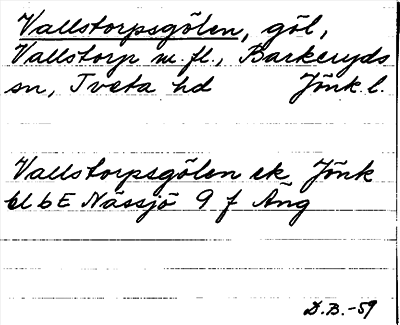 Vallstorpsgölen, göl,
Vallstorp m.fl., Barkeryds
sn, Tveta hd Jönk l.
Vallstorpsgölen ek Jönk
bE Nässjö 9 f Äng
D.B.-59